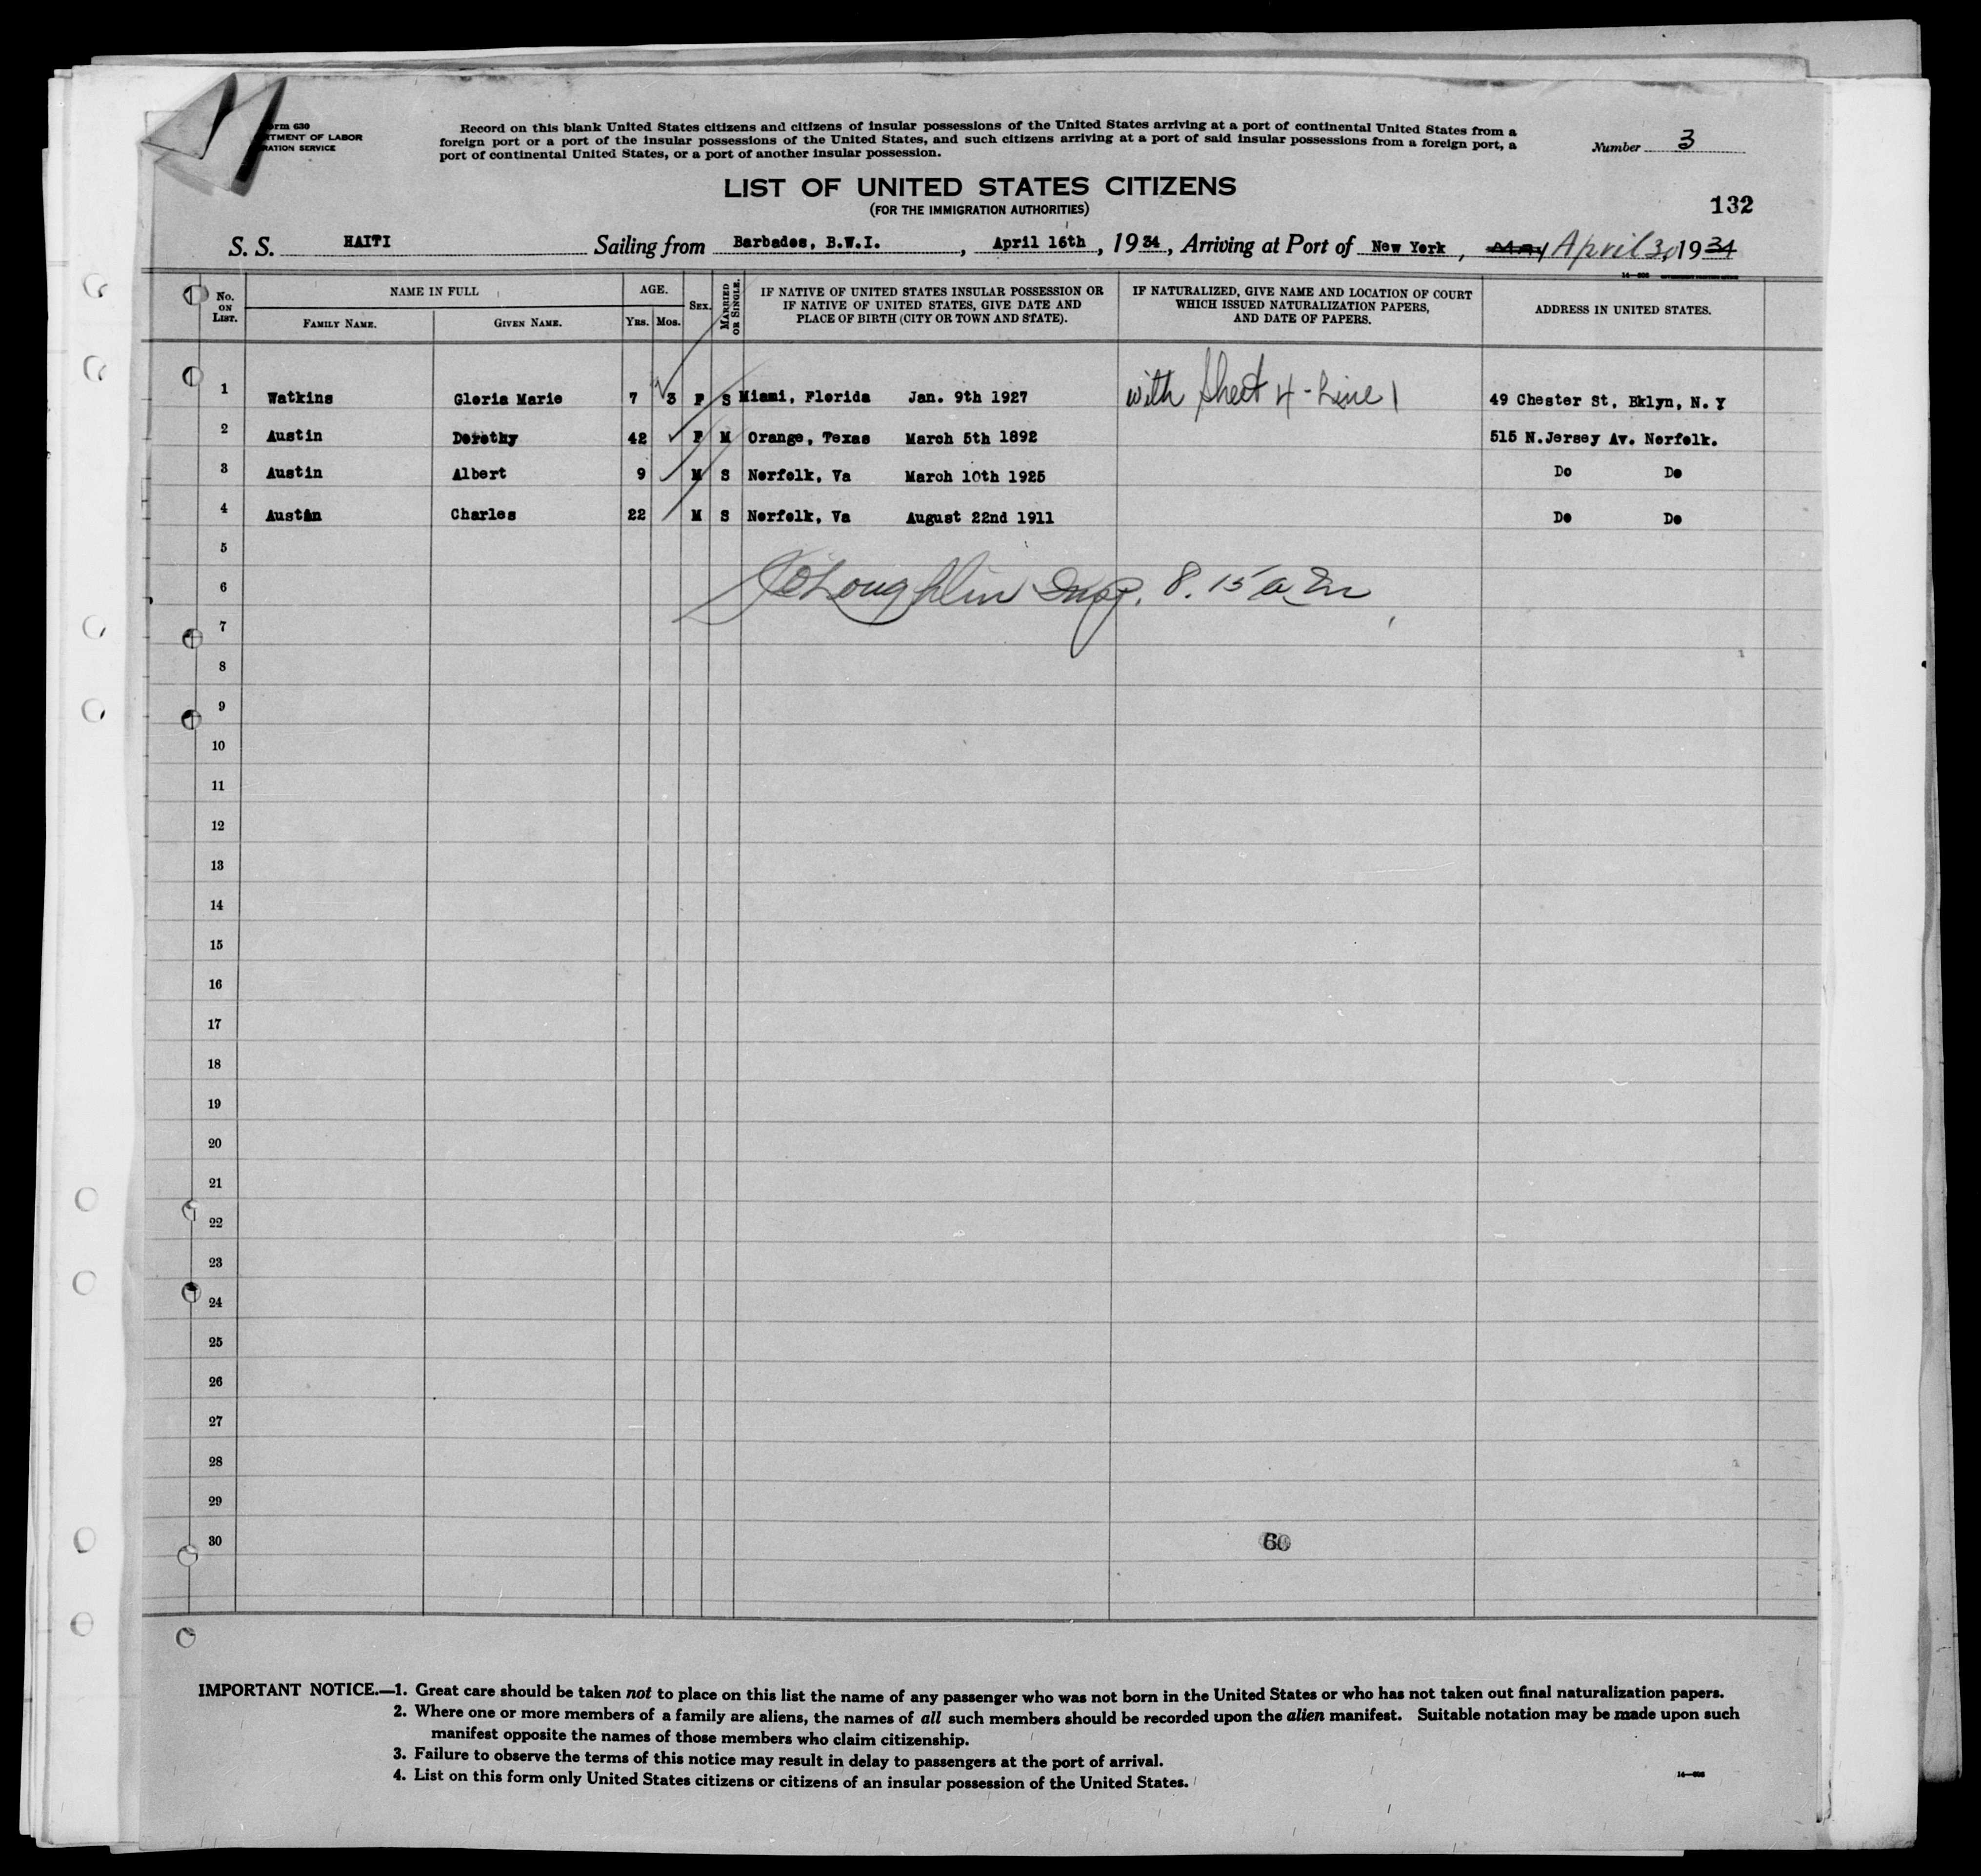 orm 630
RTMENT OF LABOR
RATION SERVICE
Record on this blank United States citizens and citizens of insular possessions of the United States arriving at a port of continental United States from a
foreign port or a port of the insular possessions of the United States, and such citizens arriving at a port of said insular possessions from a foreign port, a
port of continental United States, or a port of another insular possession.
Number 3
LIST OF UNITED STATES CITIZENS
(FOR THE IMMIGRATION AUTHORITIES)
132
S. S. HAITI Sailing from Barbados, B.W.I. , April 16th , 1934 , Arriving at Port of New York , May April 30, 1934
No. ON LIST. NAME IN FULL AGE. SEX. MARRIED OR SINGLE. IF NATIVE OF UNITED STATES INSULAR POSSESSION OR IF NATIVE OF UNITED STATES, GIVE DATE AND PLACE OF BIRTH (CITY OR TOWN AND STATE). IF NATURALIZED, GIVE NAME AND LOCATION OF COURT WHICH ISSUED NATURALIZATION PAPERS, AND DATE OF PAPERS. ADDRESS IN UNITED STATES.
FAMILY NAME. GIVEN NAME. Yrs. Mos.
1 Watkins Gloria Marie 7 3 F S Miami, Florida Jan. 9th 1927 with Sheet 4 - Line 1 49 Chester St, Bklyn, N. Y
2 Austin Dorothy 42 F M Orange, Texas March 5th 1892 515 N.Jersey Av. Norfolk.
3 Austin Albert 9 M S Norfolk, Va March 10th 1925 Do Do
4 Austin Charles 22 M S Norfolk, Va August 22nd 1911 Do Do
5
6 Loughlin Insp. 8.15 a m
7
8
9
10
11
12
13
14
15
16
17
18
19
20
21
22
23
24
25
26
27
28
29
30 60
IMPORTANT NOTICE.—1. Great care should be taken not to place on this list the name of any passenger who was not born in the United States or who has not taken out final naturalization papers.
2. Where one or more members of a family are aliens, the names of all such members should be recorded upon the alien manifest. Suitable notation may be made upon such
manifest opposite the names of those members who claim citizenship.
3. Failure to observe the terms of this notice may result in delay to passengers at the port of arrival.
4. List on this form only United States citizens or citizens of an insular possession of the United States.